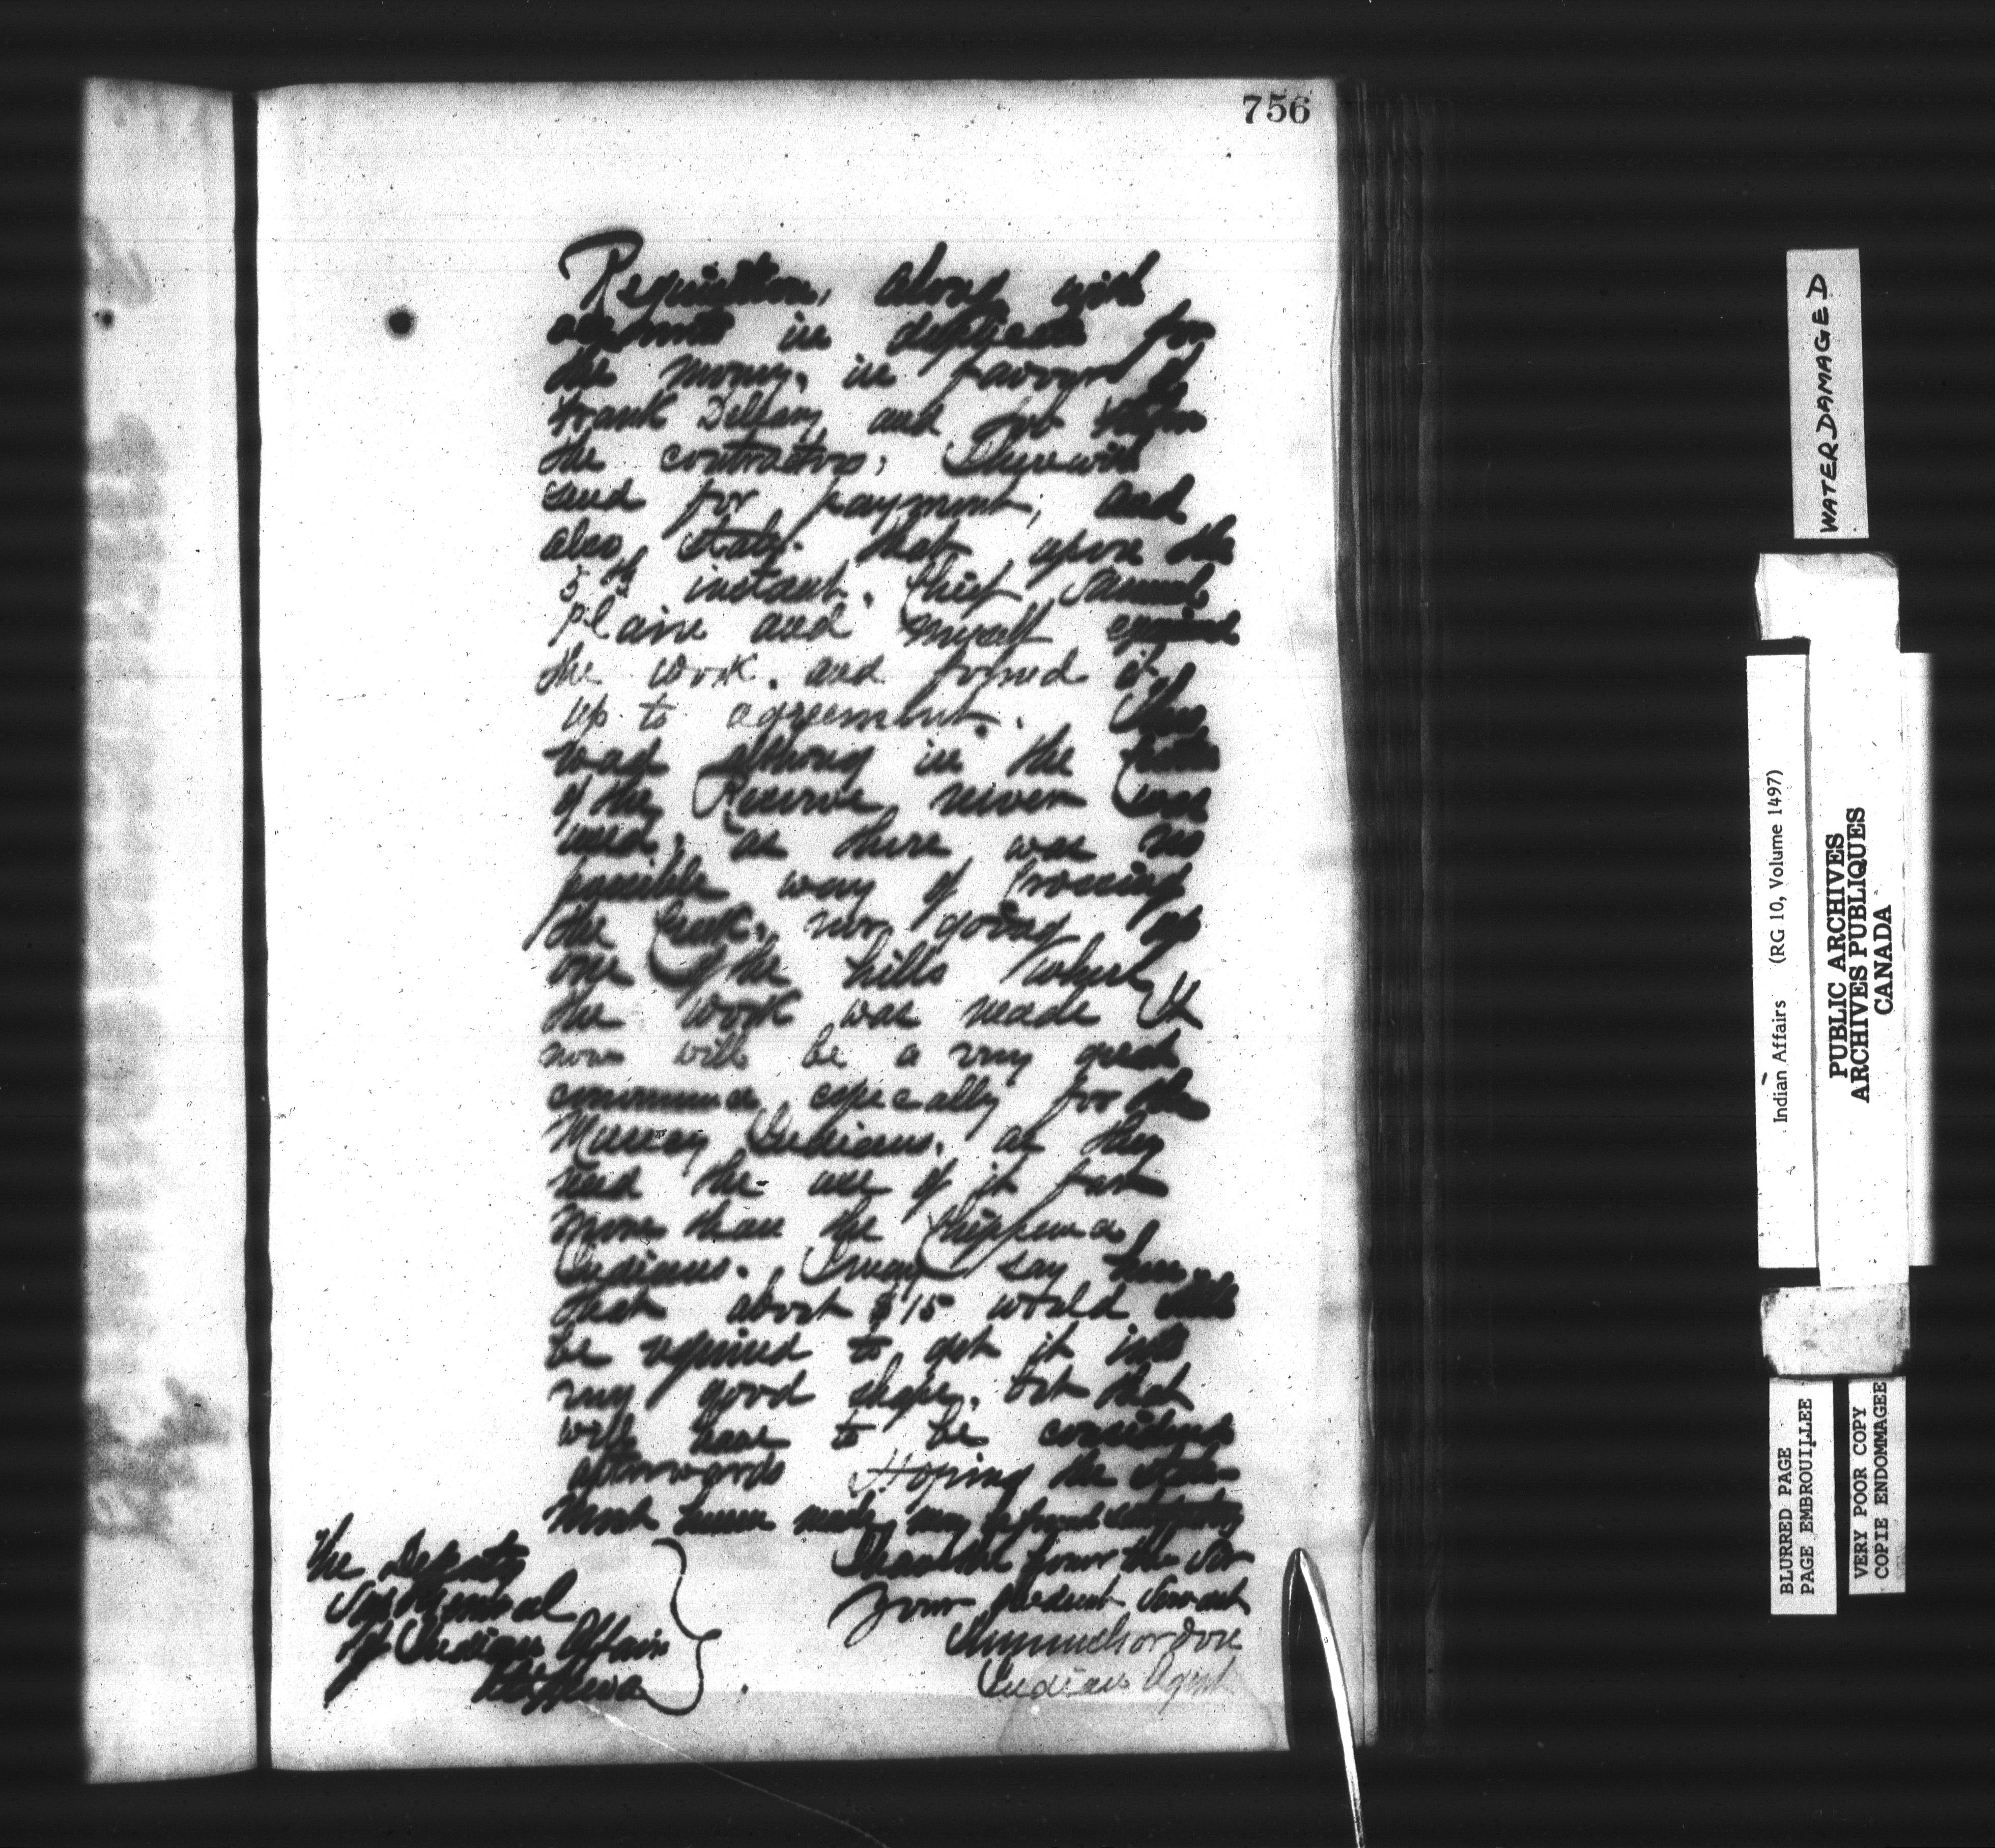 756
Requisition, along with
accounts in duplicate for
the money, in favour of
Frank Delgary and Job
the contractors, I herewith
send for payment, and
also, state that upon the
5th instant, Chief Samuel
Plain and myself examined
the work, and found it
up to agreement. This
road although in the
of the Reserve never was
used, as there was no
possible way of crossing
the Creek, nor going up
one of the hills where
the work was made It
now will be a very great
convenience especially for the
Muncey Indians, as they
need the use of it far
more than the Chippewa
Indians. I may say here
that about $15 would still
be required to get it into
very good shape, but that
will have to be considered
afterwards Hoping the state-
ment herein made, may be found satisfactory
I have the honor to be Sir
Your obedient Servant
Indian Agent
The Deputy
Sup General
of Indian Affairs
WATER DAMAGED
Indian Affairs (RG 10, Volume 1497)
PUBLIC ARCHIVES
ARCHIVES PUBLIQUES
CANADA
BLURRED PAGE
PAGE EMBROUILLEE
VERY POOR COPY
COPIE ENDOMMAGEE